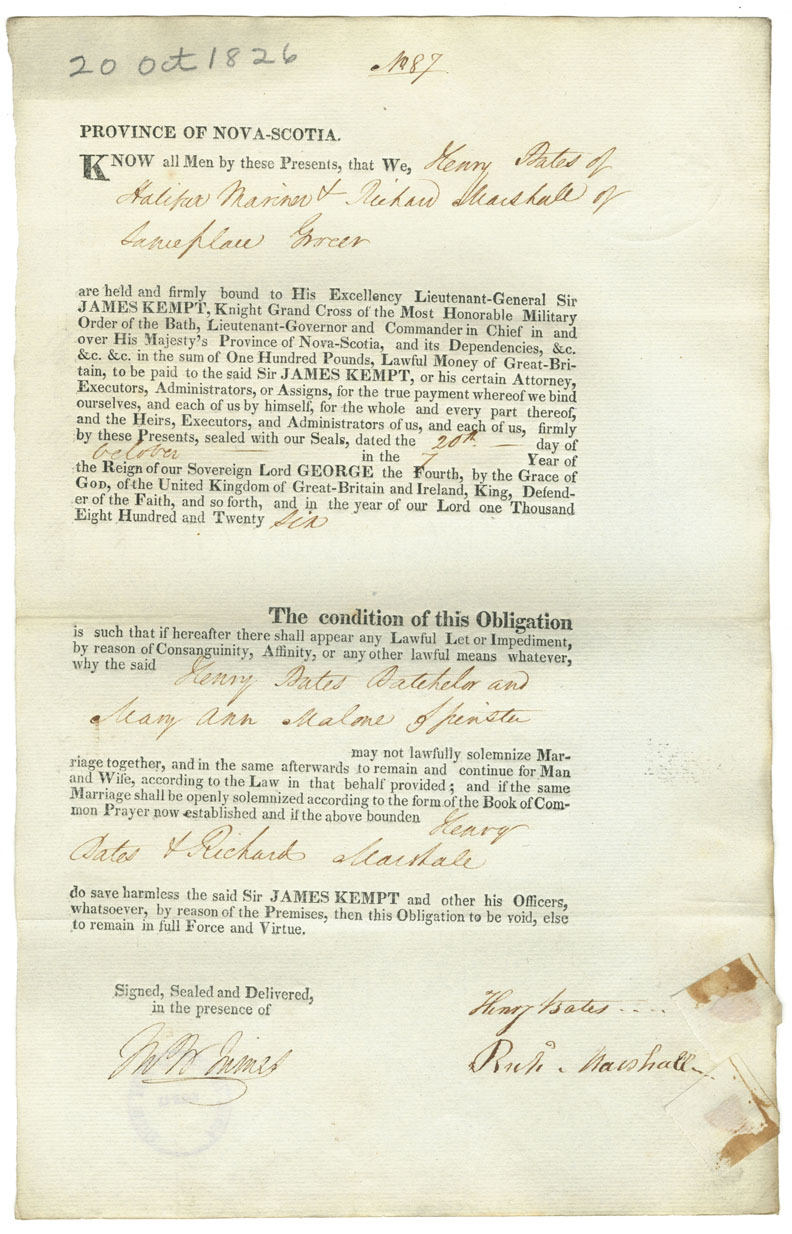 20 Oct 1826
No 87
PROVINCE OF NOVA-SCOTIA.
KNOW all Men by these Presents, that We, Henry Bates of
Halifax Mariner & Richard Marshall of
same place Grocer
are held and firmly bound to His Excellency Lieutenant-General Sir
JAMES KEMPT, Knight Grand Cross of the Most Honorable Military
Order of the Bath, Lieutenant-Governor and Commander in Chief in and
over His Majesty's Province of Nova-Scotia, and its Dependencies, &c.
&c. &c. in the sum of One Hundred Pounds, Lawful Money of Great-Bri-
tain, to be paid to the said Sir JAMES KEMPT, or his certain Attorney,
Executors, Administrators, or Assigns, for the true payment whereof we bind
ourselves, and each of us by himself, for the whole and every part thereof,
and the Heirs, Executors, and Administrators of us, and each of us, firmly
by these Presents, sealed with our Seals, dated the 20th day of
October in the 7 Year of
the Reign of our Sovereign Lord GEORGE the Fourth, by the Grace of
GOD, of the United Kingdom of Great-Britain and Ireland, King, Defend-
er of the Faith, and so forth, and in the year of our Lord one Thousand
Eight Hundred and Twenty Six
The condition of this Obligation
is such that if hereafter there shall appear any Lawful Let or Impediment,
by reason of Consanguinity, Affinity, or any other lawful means whatever,
why the said Henry Bates Batchelor and
Mary Ann Malone Spinster
may not lawfully solemnize Mar-
riage together, and in the same afterwards to remain and continue for Man
and Wife, according to the Law in that behalf provided; and if the same
Marriage shall be openly solemnized according to the form of the Book of Com-
mon Prayer now established and if the above bounden Henry
Bates & Richard Marshall
do save harmless the said Sir JAMES KEMPT and other his Officers,
whatsoever, by reason of the Premises, then this Obligation to be void, else
to remain in full Force and Virtue.
Signed, Sealed and Delivered,
in the presence of
Henry Bates
Richd Marshall